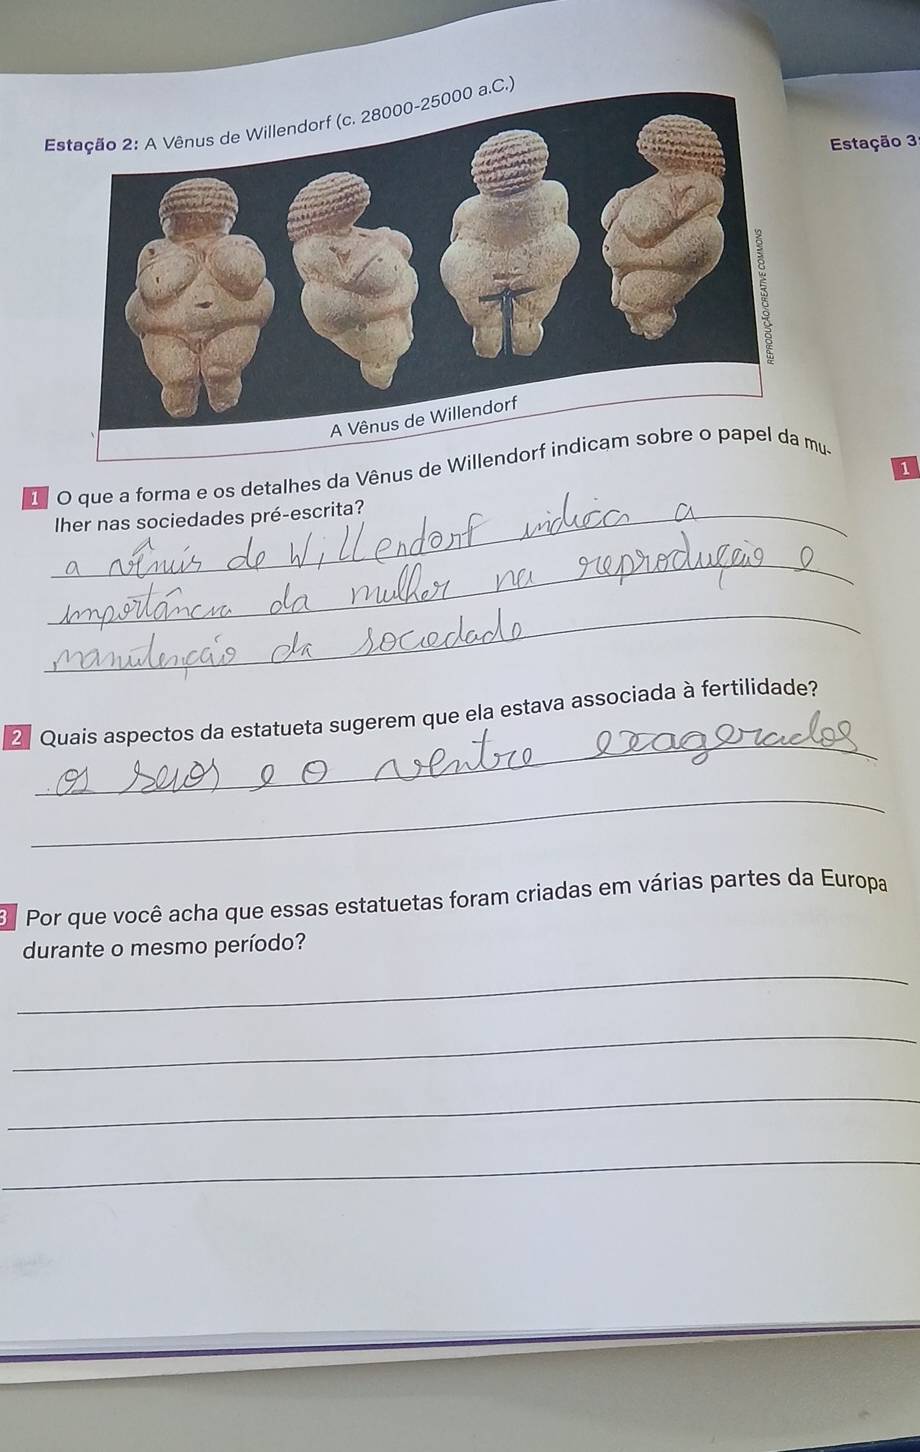 Estação 2: A Vênus de Willendorf (c. 28000-25000 a.C.)
Estação 3:
REPRODUÇÃO/CREATIVE COMMONS
A Vênus de Willendorf
1 O que a forma e os detalhes da Vênus de Willendorf indicam sobre o papel da mu-
lher nas sociedades pré-escrita?
1
a vênus de Willendorf indica a
importância da mulher na reprodução e
manutenção da sociedade
2 Quais aspectos da estatueta sugerem que ela estava associada à fertilidade?
os seios e o ventre exagerados
3 Por que você acha que essas estatuetas foram criadas em várias partes da Europa
durante o mesmo período?